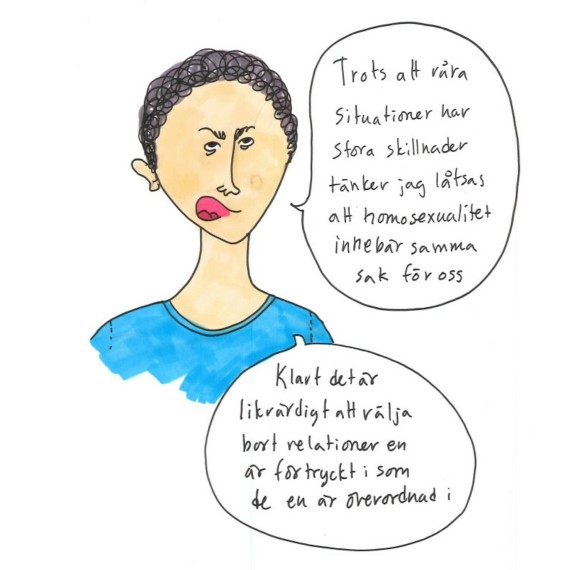 Trots att våra
situationer har
stora skillnader
tänker jag låtsas
att homosexualitet
innebär samma
sak för oss
Klart det är
likvärdigt att välja
bort relationer en
är förtryckt i som
de en är överordnad i